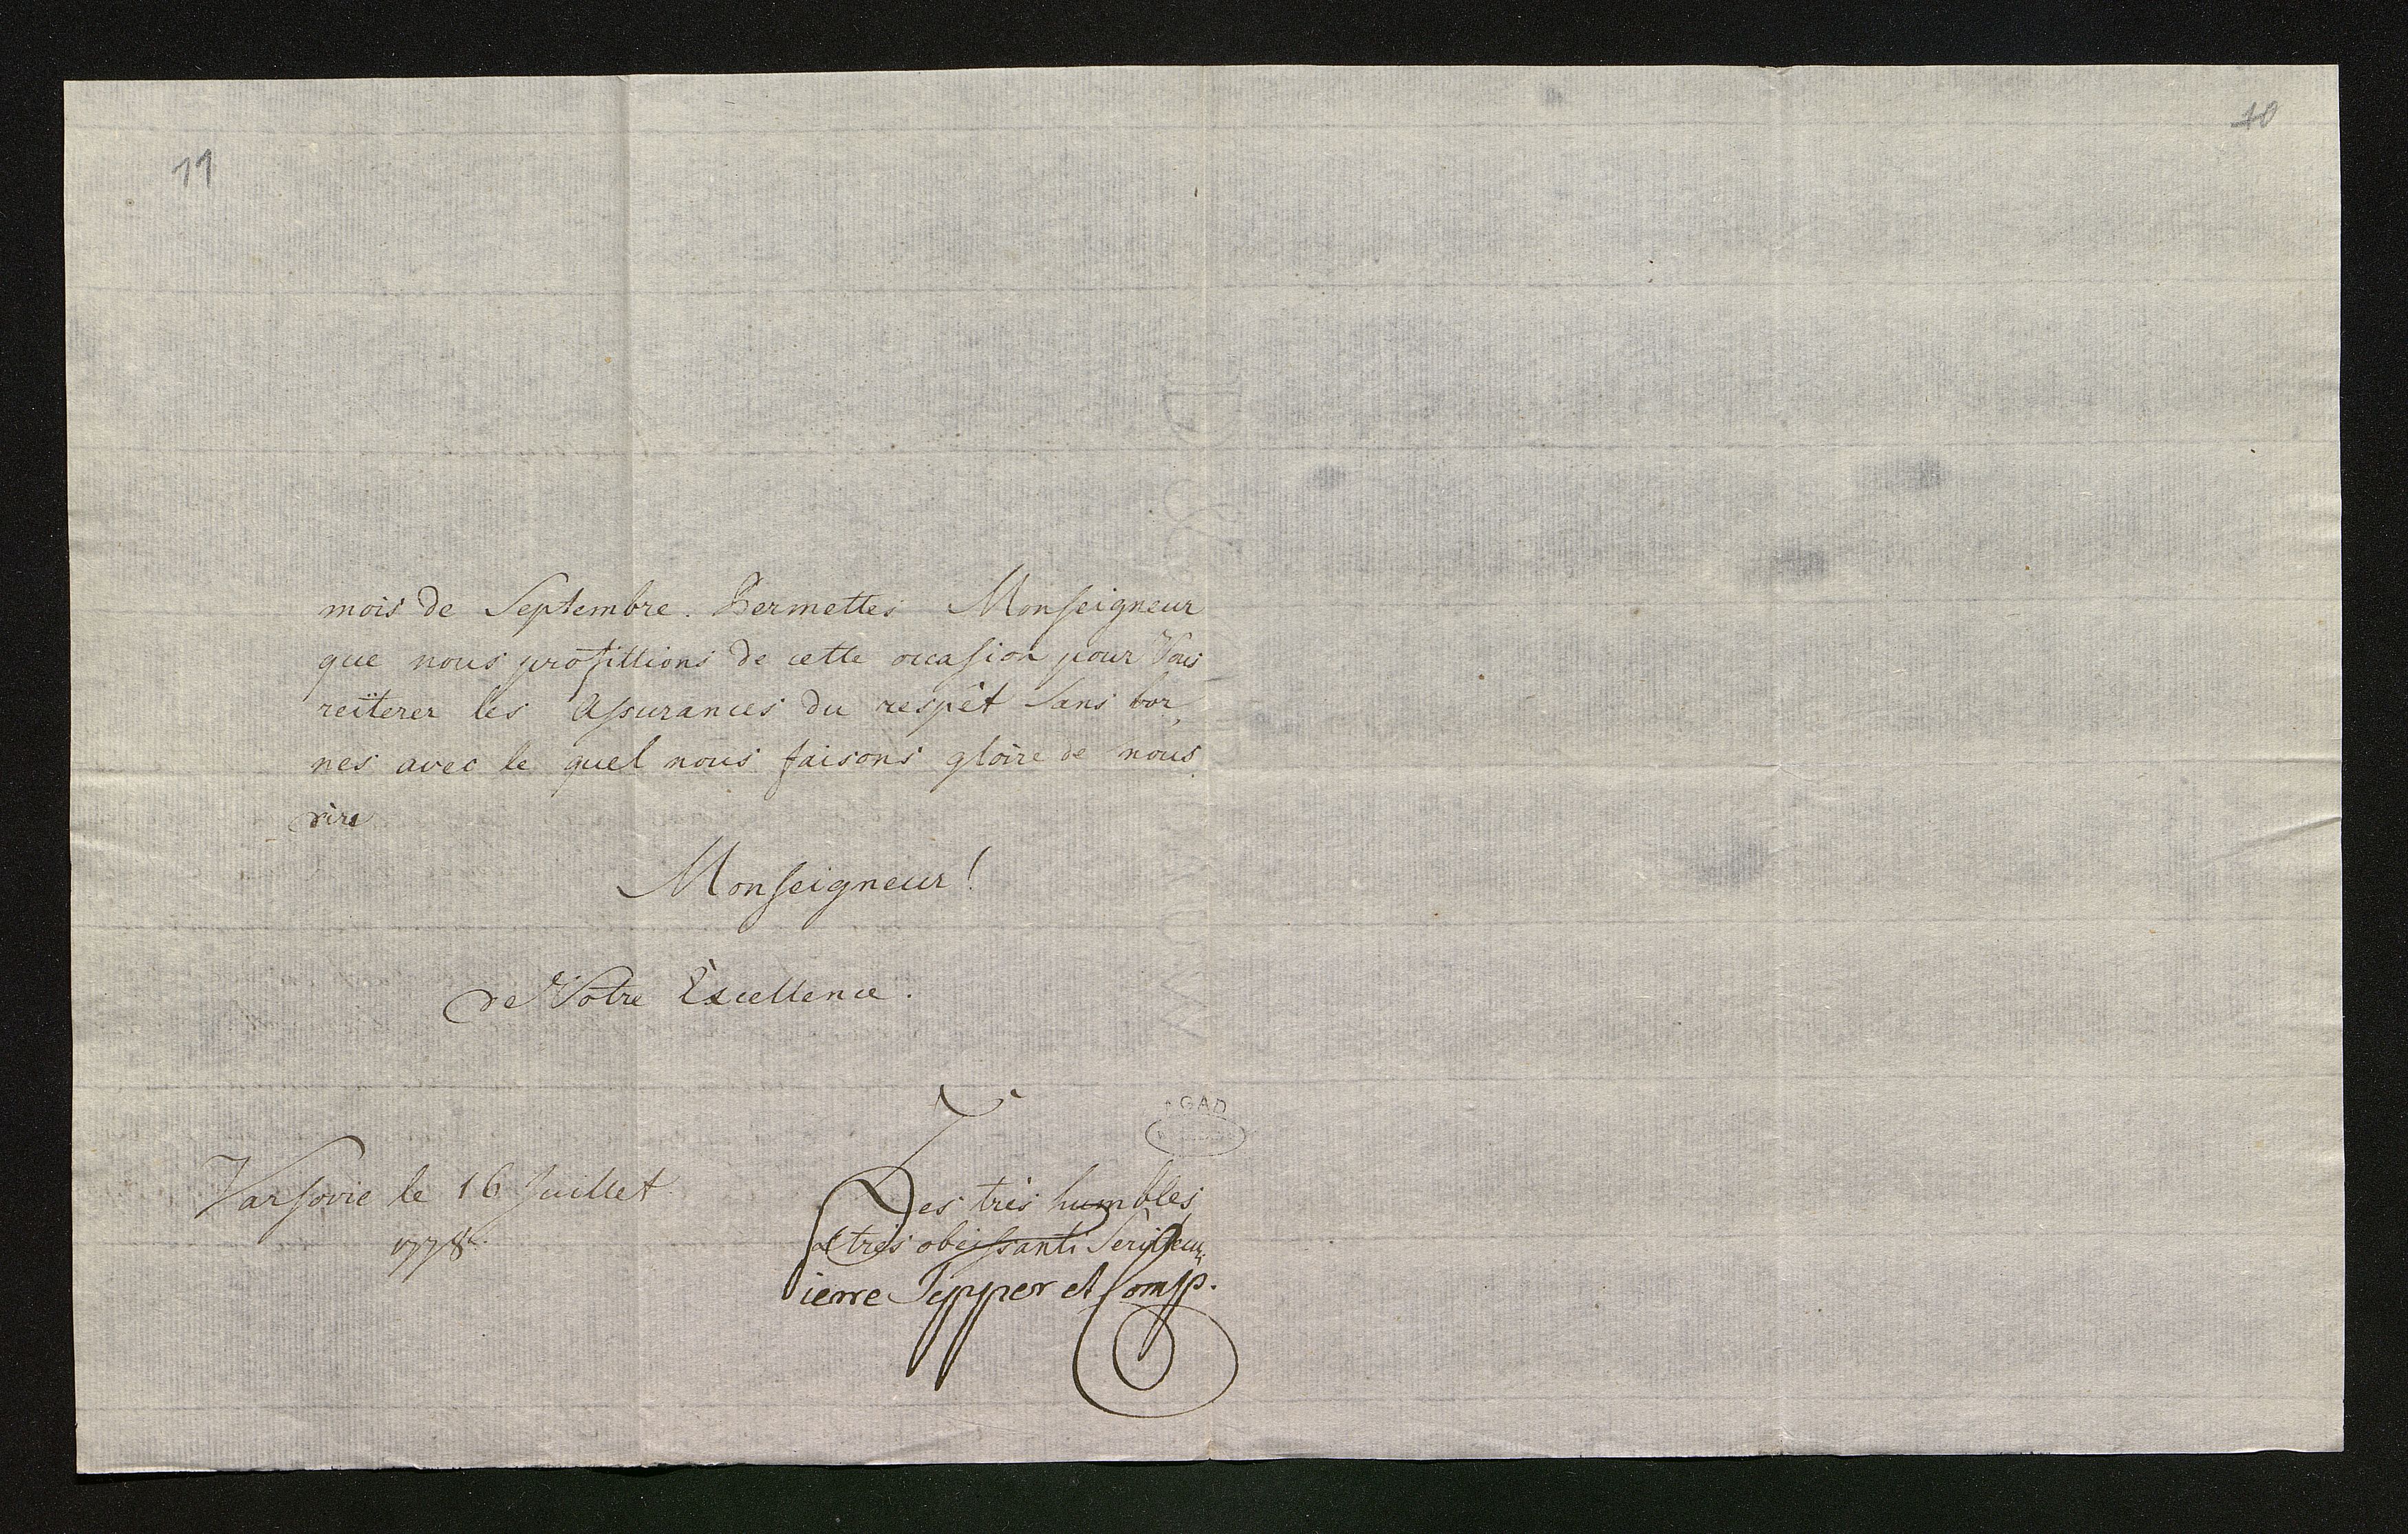 11
10
mois de Septembre. Permettes Monseigneur
que nous profittions de cette occasion pour Vous
reïterer les Assurances du respêt sans bor
nes avec le quel nous faisons gloire de nous
dire
Monseigneur!
de Votre Excellence.
AGAD
Varsovie le 16 Juillet
1778.
Des très humbles
et très obeissants Serviteurs
Pierre Tepper et Comp.